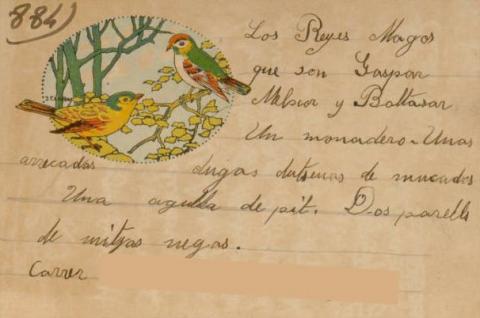 884)
Los Reyes Magos
que son Gaspar
Melsior y Baltasar
Un monadero. Unas
arrecadas dugas dutsenas de mucados
Una agulla de pit. Dos parells
de mitjas negas.
Carrer